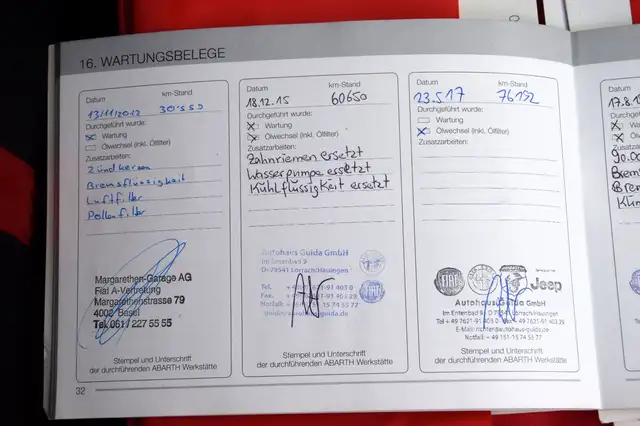 16. WARTUNGSBELEGE
Datum km-Stand
13/11/2012 30'559
Durchgeführt wurde:
Wartung
Ölwechsel (inkl. Ölfilter)
Zusatzarbeiten:
Zündkerzen
Bremsflüssigkeit
Luftfilter
Pollenfilter
Margarethen-Garage AG
Fiat A-Vertretung
Margarethenstrasse 79
4002 Basel
Tel. 061 / 227 55 55
Stempel und Unterschrift
der durchführenden ABARTH Werkstätte
Datum km-Stand
18.12.15 60650
Durchgeführt wurde:
Wartung
Ölwechsel (inkl. Ölfilter)
Zusatzarbeiten:
Zahnriemen ersetzt
Wasserpumpe ersetzt
Kühlflüssigkeit ersetzt
Autohaus Guida GmbH
Im Entenbad 9
D-79541 Lörrach/Hauingen
Stempel und Unterschrift
der durchführenden ABARTH Werkstätte
Datum km-Stand
23.5.17 76152
Durchgeführt wurde:
Wartung
Ölwechsel (inkl. Ölfilter)
Zusatzarbeiten:
FIAT Jeep
Autohaus Guida GmbH
Im Entenbad 9 D-79541 Lörrach/Hauingen
Stempel und Unterschrift
der durchführenden ABARTH Werkstätte
Datum
17.8.1
90.00
32